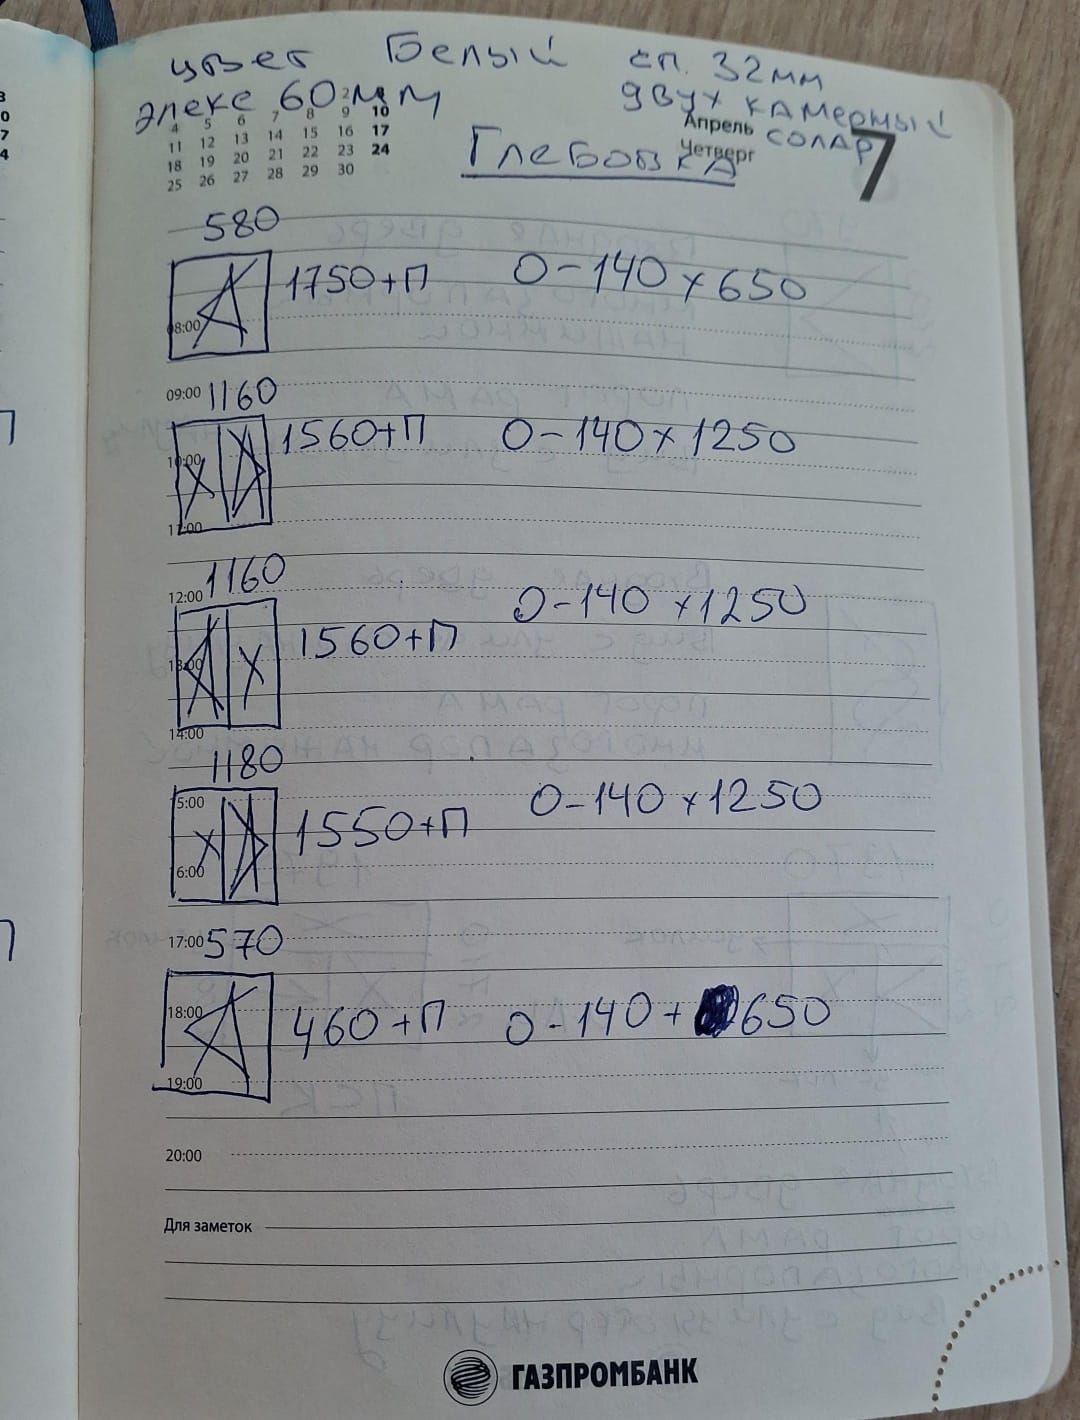 цвет Белый сп. 32мм
элекс 60мм двух камерный
солар
Апрель
Четверг
7
Глебовка
4 5 6 7 8 9 10
11 12 13 14 15 16 17
18 19 20 21 22 23 24
25 26 27 28 29 30
580
1750+П О-140х650
08:00
09:00 1160
1560+П О-140х1250
х
10:00
11:00
1160
12:00
О-140х1250
1560+П
13:00
х
14:00
1180
15:00
О-140х1250
1550+П
х
16:00
17:00 570
18:00
460+П О-140+650
19:00
20:00
Для заметок
ГАЗПРОМБАНК